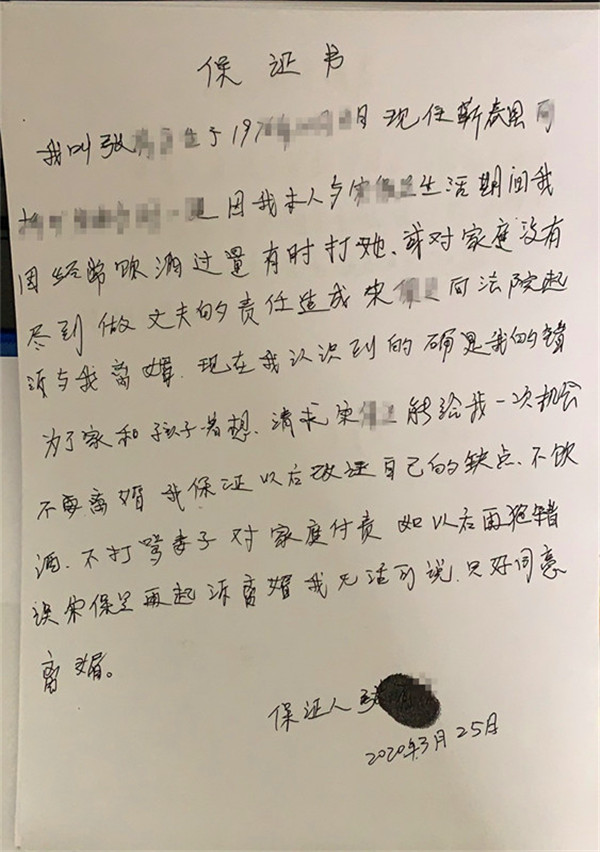 保证书
我叫张 生于197 日现住蕲春县
因我本人与宋 生活期间我
因经常饮酒过量有时打她、或对家庭没有
尽到做丈夫的责任造成宋 向法院起
诉与我离婚.现在我认识到的确是我的错
为了家和孩子着想.请求宋 能给我一次机会
不要离婚我保证以后改进自己的缺点.不饮
酒.不打骂妻子对家庭付责如以后再犯错
误宋保 再起诉离婚我无话可说.只好同意
离婚。
保证人 张
2020年3月25日